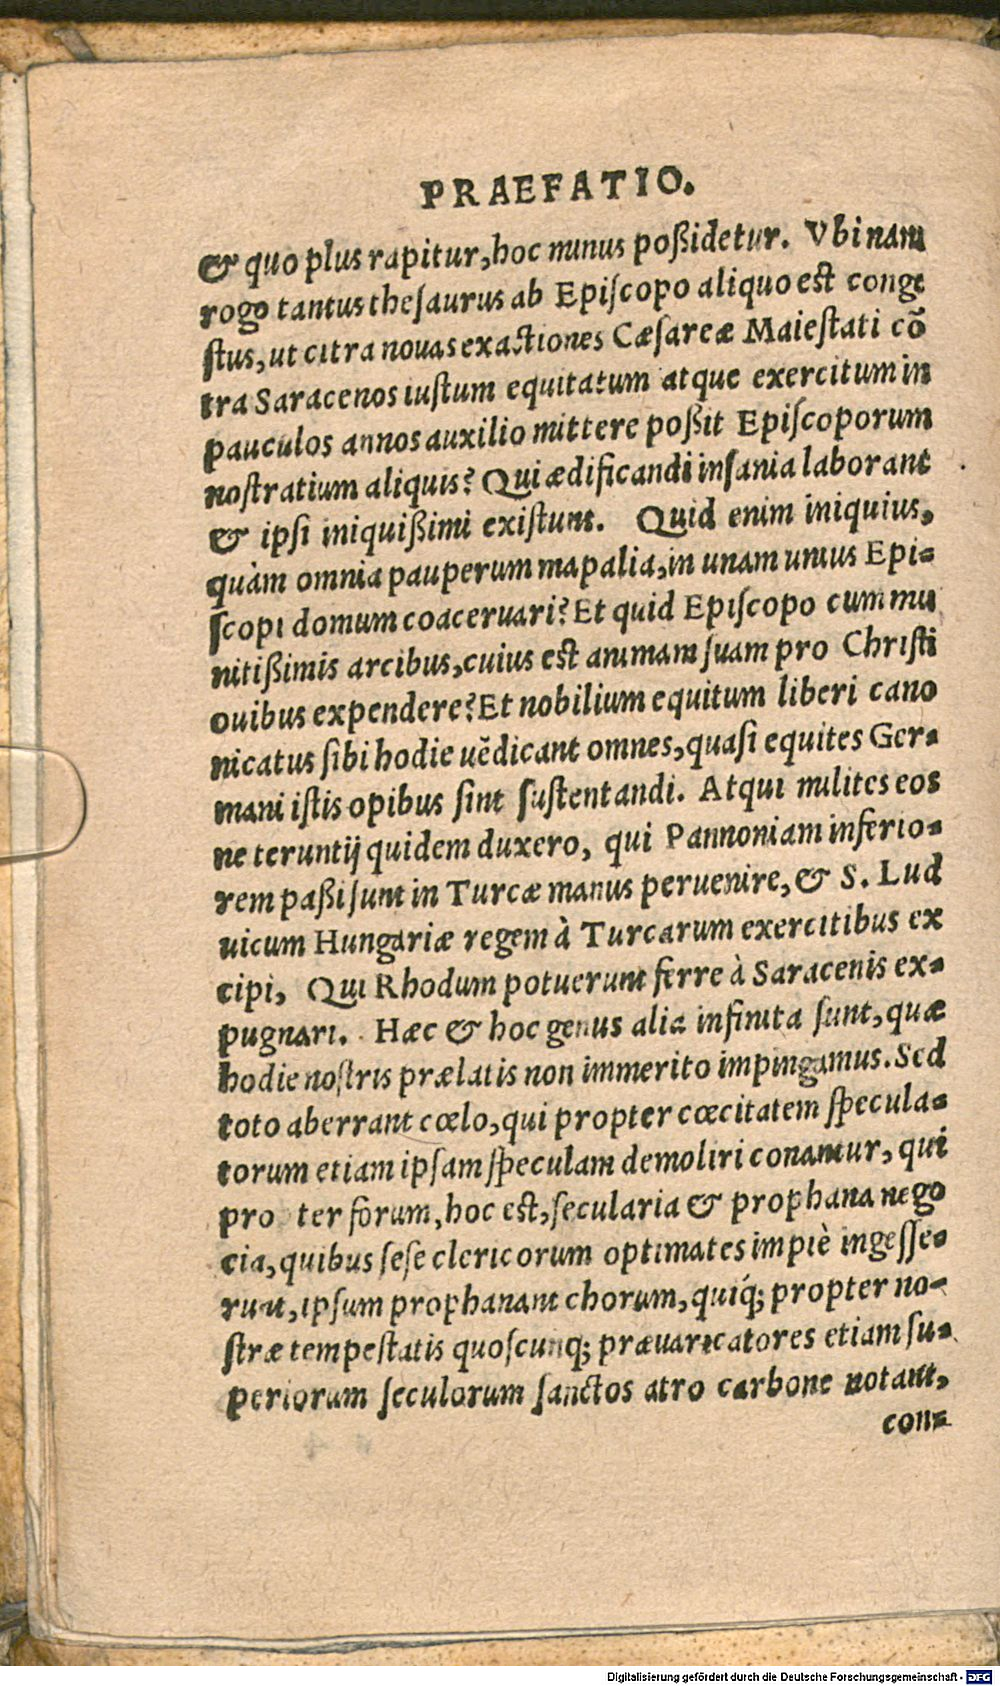 PRAEFATIO.
& quo plus rapitur, hoc minus poßidetur. Vbinam
rogo tantus theſaurus ab Epiſcopo aliquo est conge
ſtus, ut citra nouas exactiones Cæſareæ Maieſtati cō
tra Saracenos iuſtum equitatum atque exercitum in
pauculos annos auxilio mittere poßit Epiſcoporum
noſtratium aliquis? Qui ædificandi inſania laborant
& ipſi iniquißimi exiſtunt. Quid enim iniquius,
quàm omnia pauperum mapalia, in unam unius Epi-
ſcopi domum coaceruari? Et quid Epiſcopo cum mu
nitißimis arcibus, cuius est animam ſuam pro Chriſti
ouibus expendere? Et nobilium equitum liberi cano
nicatus ſibi hodie uēdicant omnes, quaſi equites Ger-
mani iſtis opibus ſint ſuſtentandi. Atqui milites eos
ne teruntij quidem duxero, qui Pannoniam inferio-
rem paßi ſunt in Turcæ manus peruenire, & S. Lud
uicum Hungariæ regem à Turcarum exercitibus ex
cipi, Qui Rhodum potuerunt ferre à Saracenis ex-
pugnari. Hæc & hoc genus alia infinita ſunt, quæ
hodie noſtris prælatis non immerito impingamus. Sed
toto aberrant cœlo, qui propter cœcitatem ſpecula-
torum etiam ipſam ſpeculam demoliri conantur, qui
pro ter forum, hoc est, ſecularia & prophana nego
cia, quibus ſeſe clericorum optimates impiè ingeſſe-
runt, ipſum prophanant chorum, quíq; propter no-
ſtræ tempeſtatis quoſcunq; præuaricatores etiam ſu-
periorum ſeculorum ſanctos atro carbone notant,
con-
Digitalisierung gefördert durch die Deutsche Forschungsgemeinschaft - DFG